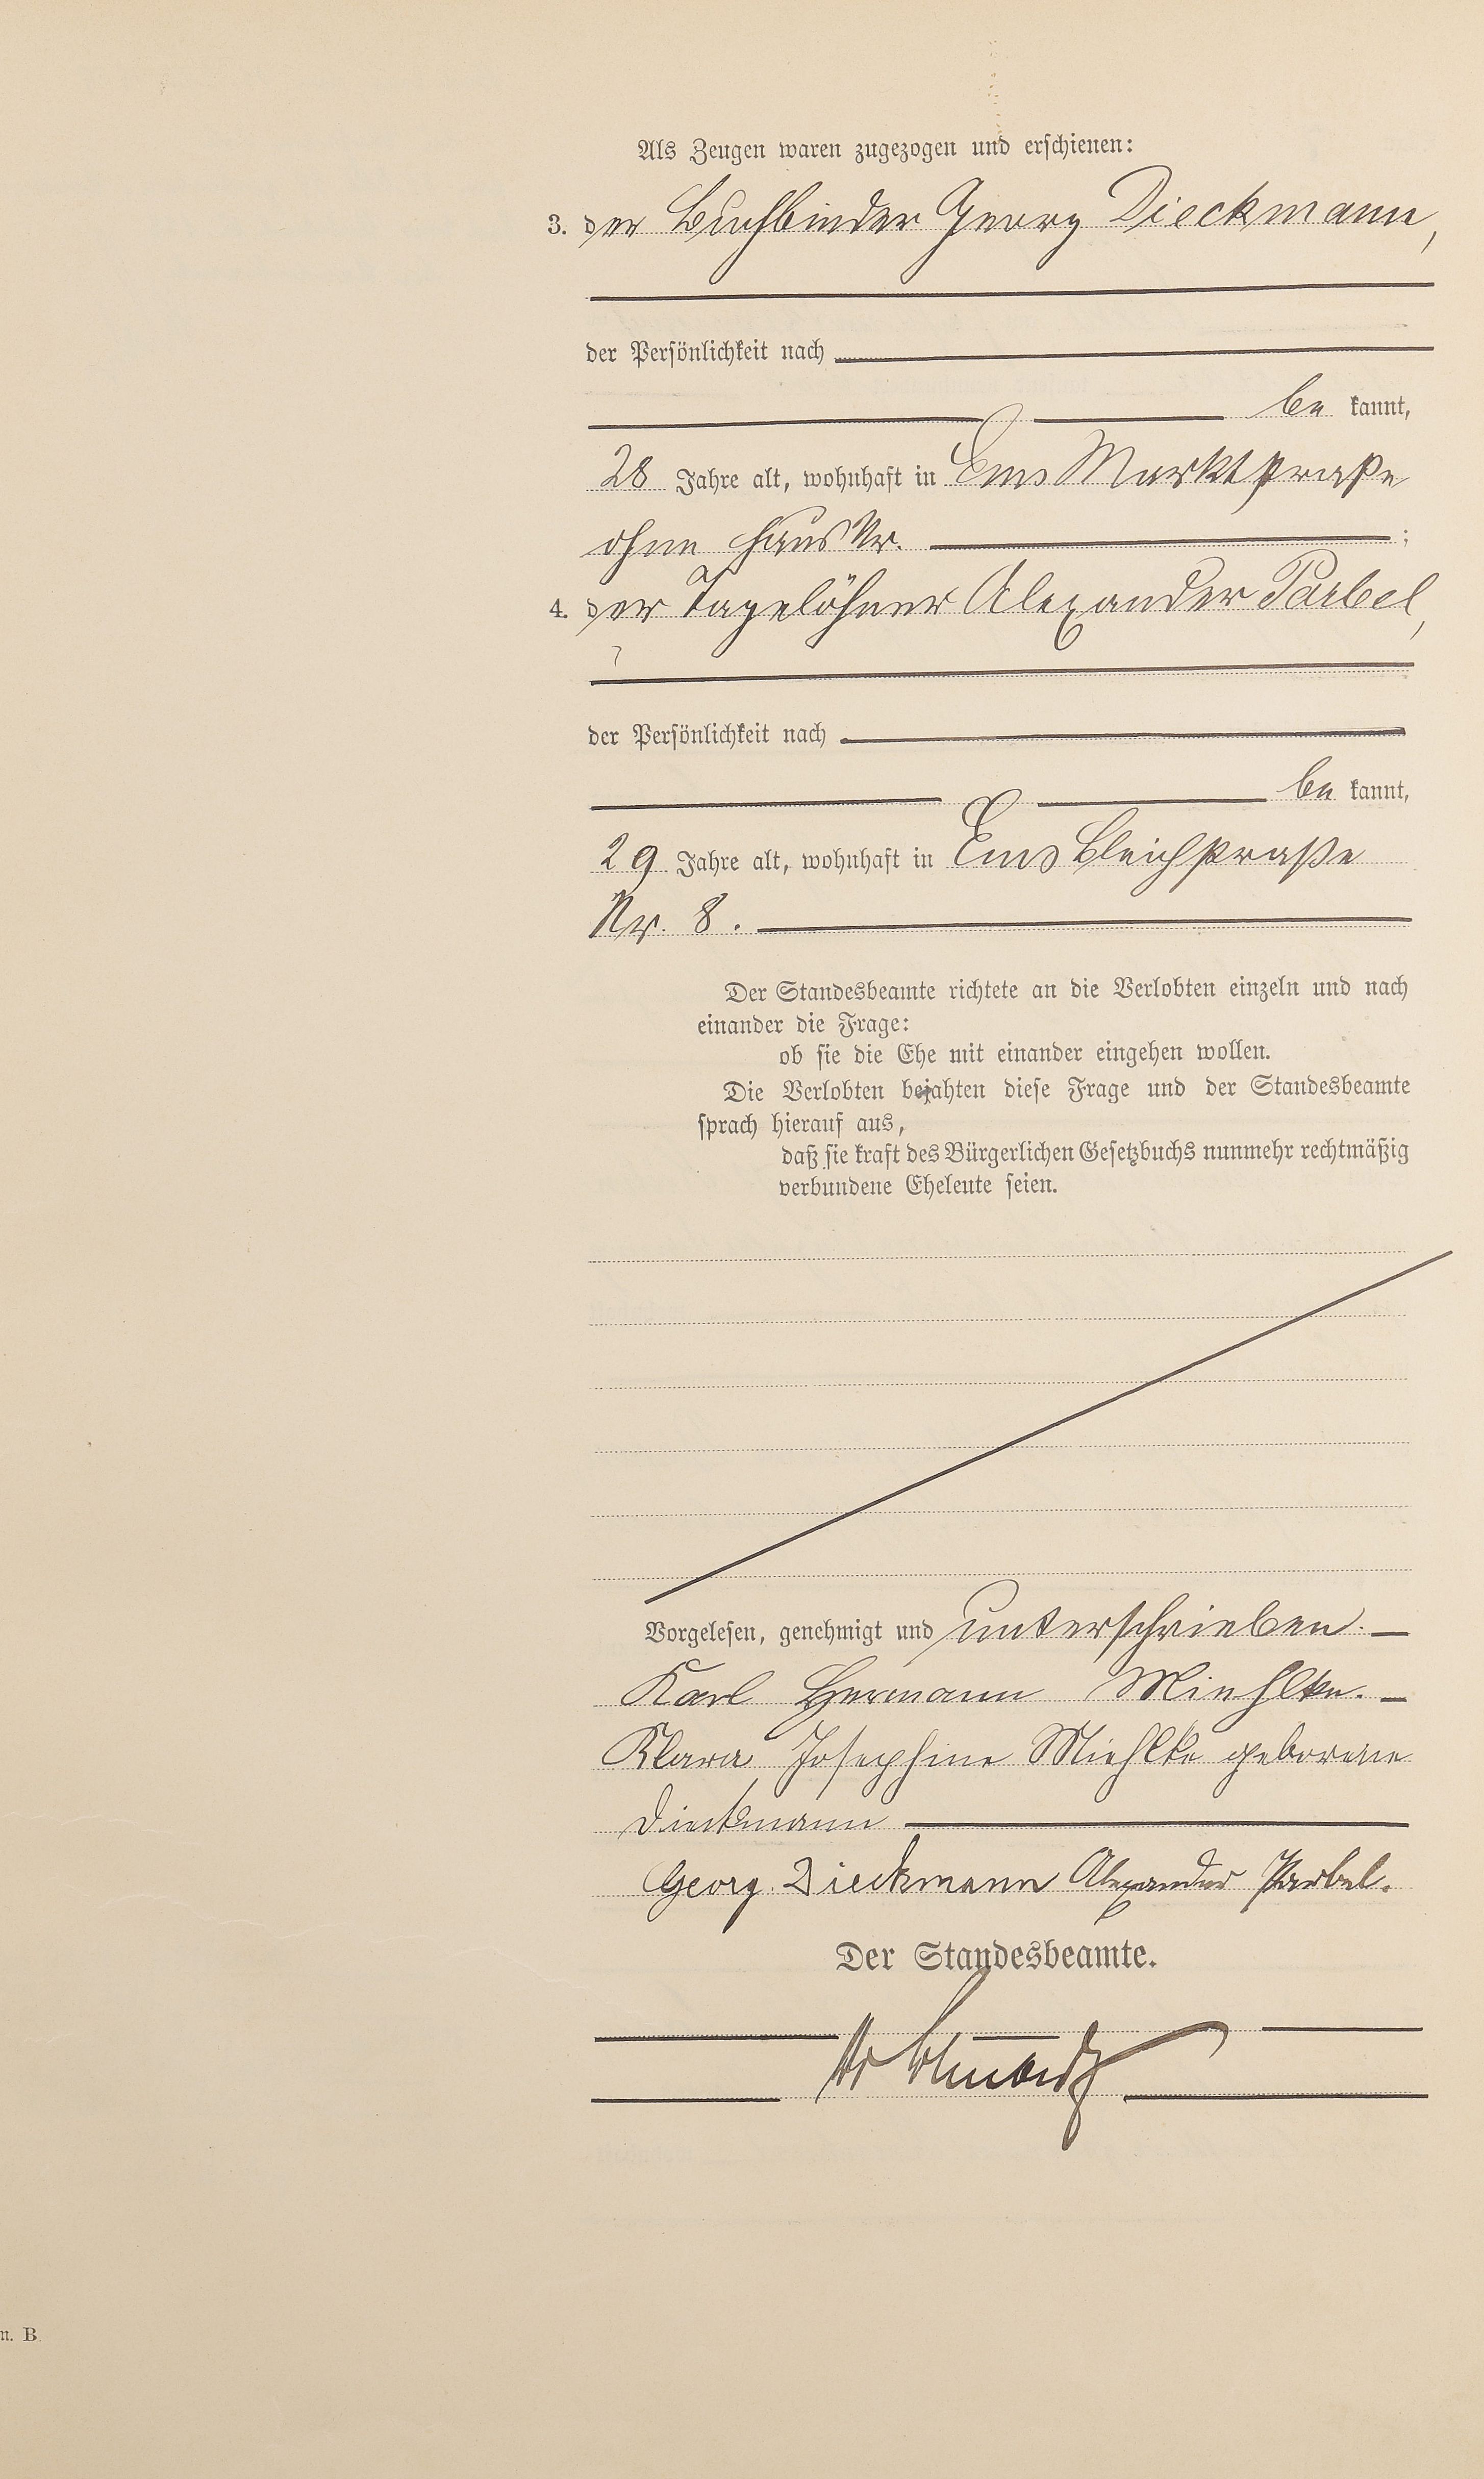 Als Zeugen waren zugezogen und erschienen:
3. der Buchbinder Georg Dieckmann,
der Persönlichkeit nach
be kannt,
28 Jahre alt, wohnhaft in Ems Marktstraße
ohne Haus Nr. ;
4. der Tagelöhner Alexander Parbel,
der Persönlichkeit nach
be kannt,
29 Jahre alt, wohnhaft in Ems Bleichstraße
Nr. 8.
Der Standesbeamte richtete an die Verlobten einzeln und nach
einander die Frage:
ob sie die Ehe mit einander eingehen wollen.
Die Verlobten bejahten diese Frage und der Standesbeamte
sprach hierauf aus,
daß sie kraft des Bürgerlichen Gesetzbuchs nunmehr rechtmäßig
verbundene Eheleute seien.
Vorgelesen, genehmigt und unterschrieben. —
Karl Hermann Miehlke. —
Klara Josephine Miehlke geborene
Dieckmann
Georg Dieckmann Alexander Parbel.
Der Standesbeamte.
n. B.